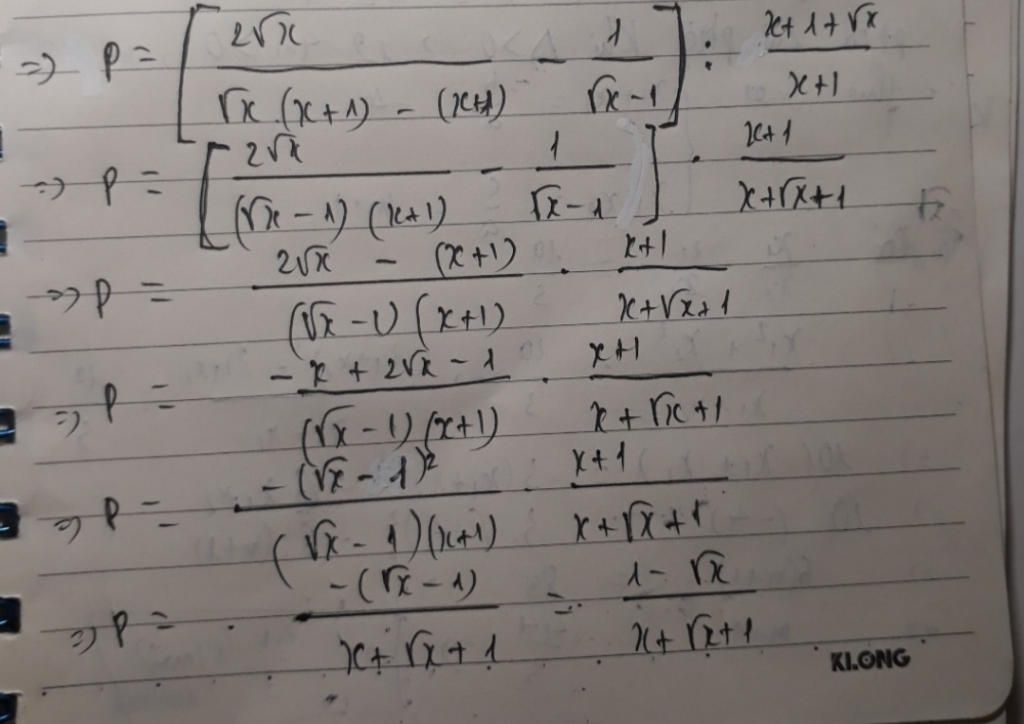 => P = [ 2√x / (√x.(x+1) - (x+1)) - 1 / (√x-1) ] : (x+1+√x) / (x+1)
=> P = [ 2√x / ((√x-1)(x+1)) - 1 / (√x-1) ] . (x+1) / (x+√x+1)
=> P = (2√x - (x+1)) / ((√x-1)(x+1)) . (x+1) / (x+√x+1)
=> P = (-x + 2√x - 1) / ((√x-1)(x+1)) . (x+1) / (x+√x+1)
=> P = -(√x-1)² / ((√x-1)(x+1)) . (x+1) / (x+√x+1)
=> P = -(√x-1) / (x+√x+1) = (1-√x) / (x+√x+1)
KLONG